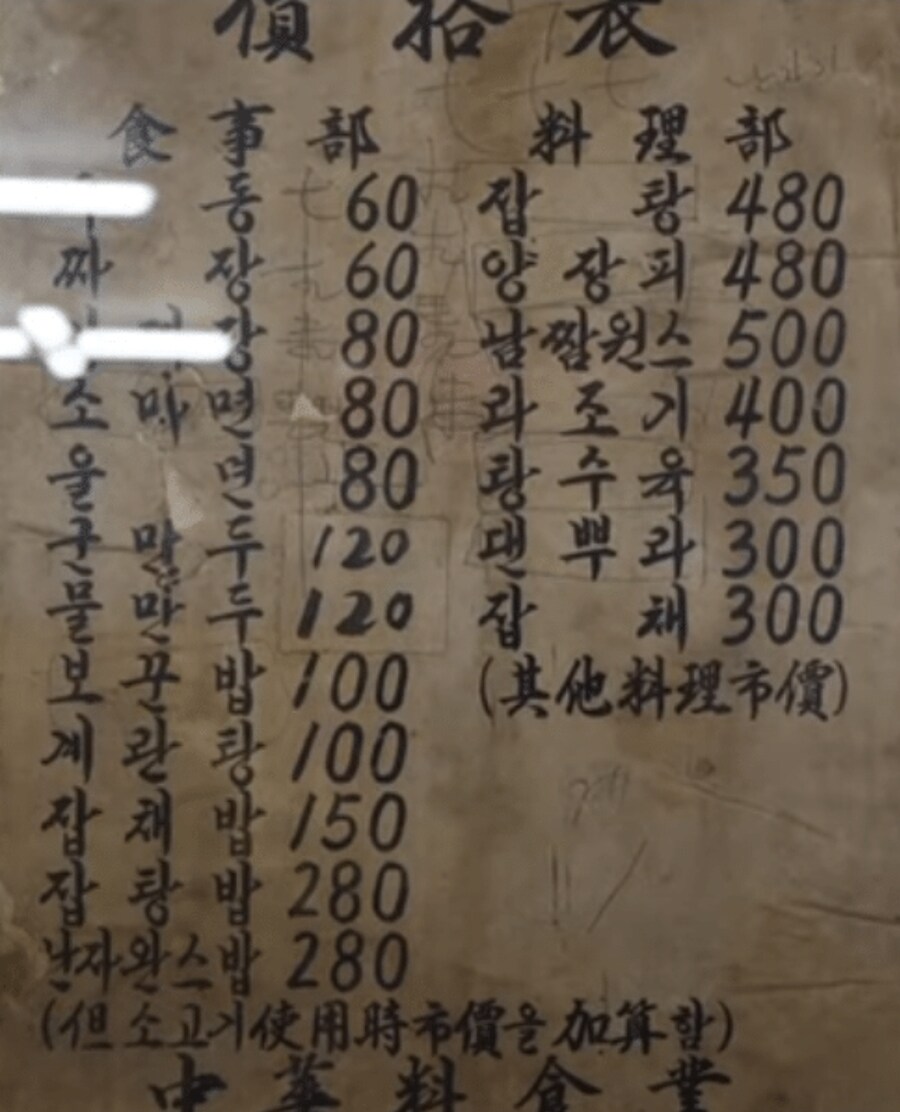 價 拾 表
食 事 部
동 60
짜 장 60
장 80
소 마 면 80
울 면 80
군 만 두 120
물 만 두 120
보 꾸 밥 100
계 란 탕 100
잡 채 밥 150
잡 탕 밥 280
난자완스밥 280
料 理 部
잡 탕 480
양 장 피 480
남짬원스 500
라 조 기 400
탕 수 육 350
댄 뿌 라 300
잡 채 300
(其他料理市價)
(但 소고기使用時市價을 加算함)
中 華 料 食 業